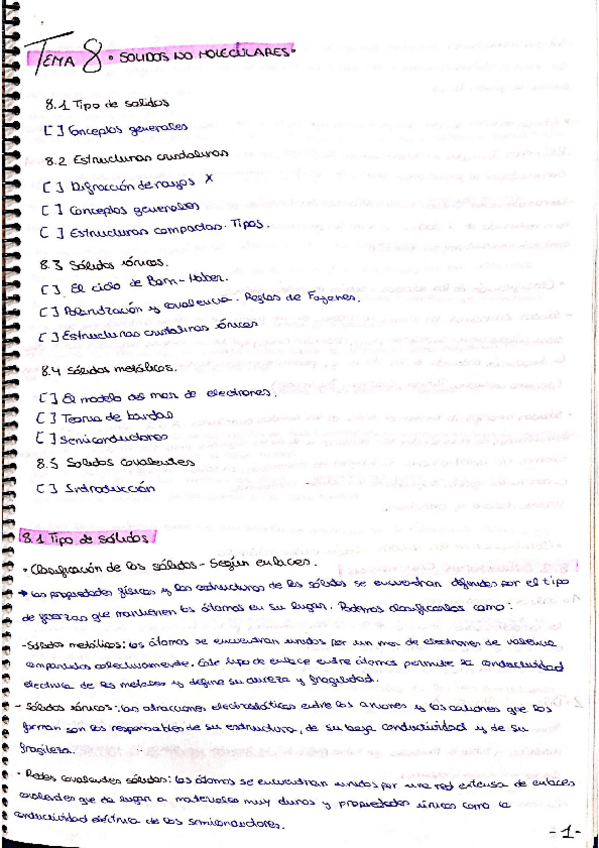 TEMA 8 • SOLIDOS NO MOLECULARES•
8.1 Tipo de solidos
[ ] Conceptos generales
8.2 Estructuras cristalinas
[ ] Difracción de rayos X
[ ] Conceptos generales
[ ] Estructuras compactas. Tipos.
8.3 Sólidos iónicos.
[ ] El ciclo de Born-Haber.
[ ] Polarización y covalencia. Reglas de Fajanes.
[ ] Estructuras cristalinas iónicas
8.4 Sólidos metálicos.
[ ] El modelo del mar de electrones.
[ ] Teoria de bandas
[ ] Semiconductores
8.5 Solidos covalentes
[ ] Introducción
8.1 Tipo de sólidos
• Clasificación de los sólidos - Según enlaces.
→ Las propiedades físicas y las estructuras de los sólidos se encuentran definidas por el tipo
de fuerzas que mantienen los átomos en su lugar. Podemos clasificarlos como:
-Sólidos metálicos: los átomos se encuentran unidos por un mar de electrones de valencia
compartidos colectivamente. Este tipo de enlace entre átomos permite la conductividad
electrica de los metales y define su dureza y fragilidad.
- Sólidos iónicos: las atracciones electrostáticas entre los aniones y los cationes que los
forman son las responsables de su estructura, de su baja conductividad y de su
fragileza.
• Redes covalentes sólidas: los átomos se encuentran unidos por una red extensa de enlaces
covalentes que da lugar a materiales muy duros y propiedades únicas como la
conductividad eléctrica de los semiconductores.
-1-